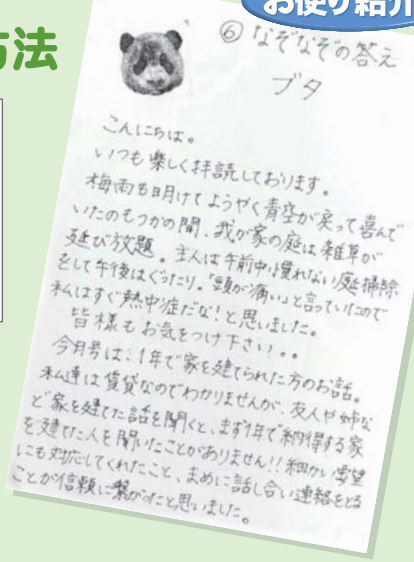 お便り紹介
方法
⑥ なぞなぞの答え
ブタ
こんにちは。
いつも楽しく拝読しております。
梅雨も明けてようやく青空が戻って喜んで
いたのもつかの間、我が家の庭は雑草が
延び放題。主人は午前中慣れない庭掃除
をして午後はぐったり。「頭が痛い」と言っていたので
私はすぐ熱中症だな!と思いました。
皆様もお気をつけ下さい。。
今月号は、1年で家を建てられた方のお話。
私達は賃貸なのでわかりませんが、友人や姉な
ど家を建てた話を聞くと、まず1年で納得する家
を建てた人を聞いたことがありません!!細かい要望
にも対応してくれたこと、まめに話し合い連絡をとる
ことが信頼に繋がったと思いました。